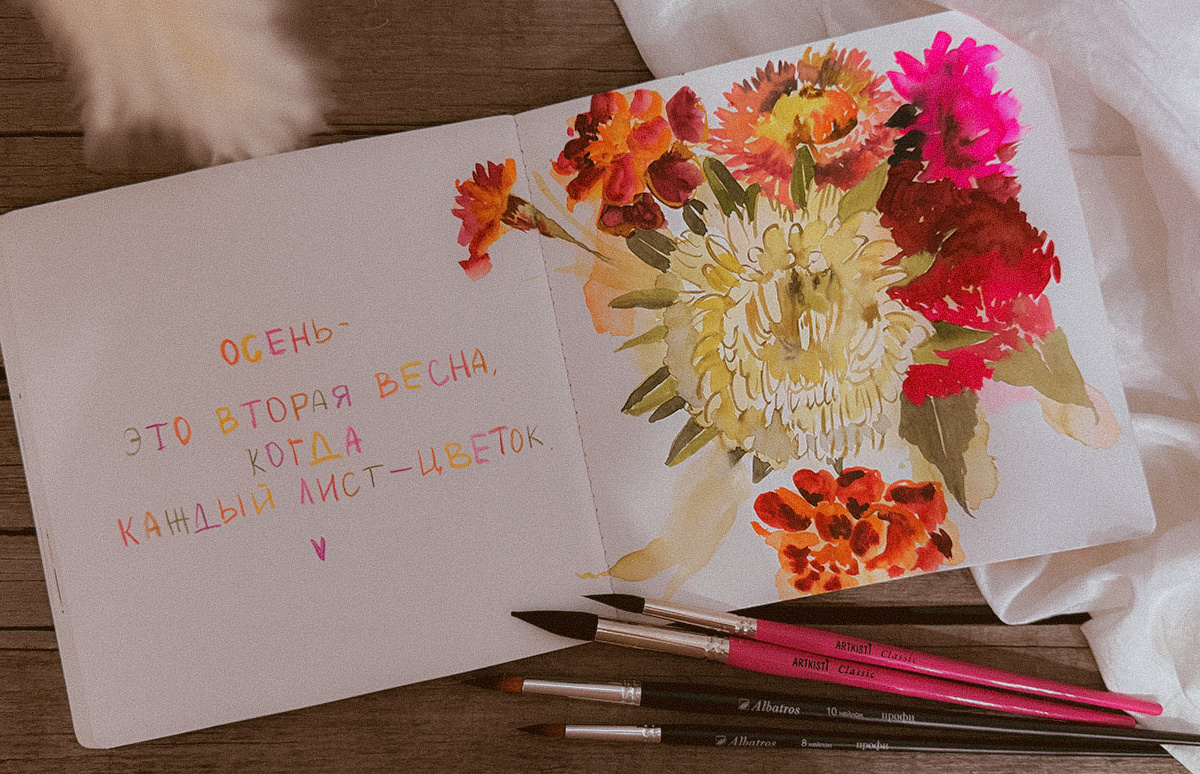 ОСЕНЬ-
ЭТО ВТОРАЯ ВЕСНА,
КОГДА
КАЖДЫЙ ЛИСТ—ЦВЕТОК.
ARTKISTI Classic
ARTKISTI Classic
Albatros 10 нейлон профи
Albatros 8 нейлон профи